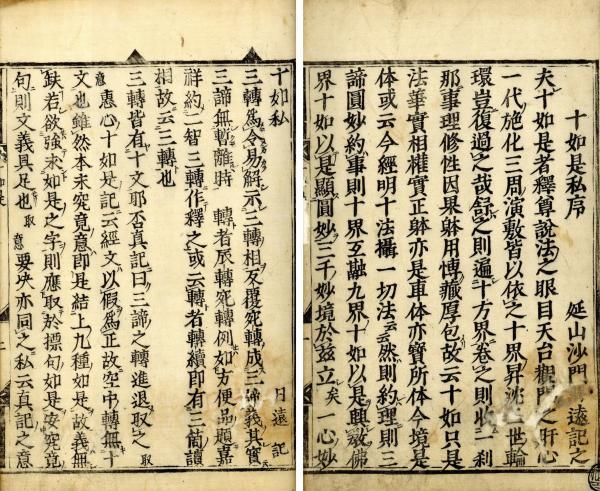 十如是私序　延山沙門　遠記之
夫十如是者釋尊說法之眼目天台觀門之肝心
一代施化三周演敷皆以依之十界昇沉　世輪
環豈復過之哉舒之則遍十方界卷之則收一刹
那事理修性因果躰用博藏厚包故云十如只是
法華實相權實正躰亦是車体亦寶所体今境是
体或云今經明十法攝一切法云云然則約理則三
諦圓妙約事則十界互融九界十如以是興發佛
界十如以是顯圓妙三千妙境於玆立矣一心妙
十如私　日遠記
三轉爲令易解示三轉相反覆宛轉成三諦義其實
三諦無暫離時　轉者展轉宛轉例如方便品題嘉
祥約二智三轉作釋之或云轉者轉續即有三箇讀
相故云三轉也
三轉皆有十文耶否真記曰三諦之轉進退取之取
意惠心十如是記云經文以假爲正故空中轉無十
文也雖然本末究竟意即是結上九種如是故義無
缺若欲強求如是之字則應取於標句如是安究竟
句則文義具足也取意要決亦同之私云真記之意